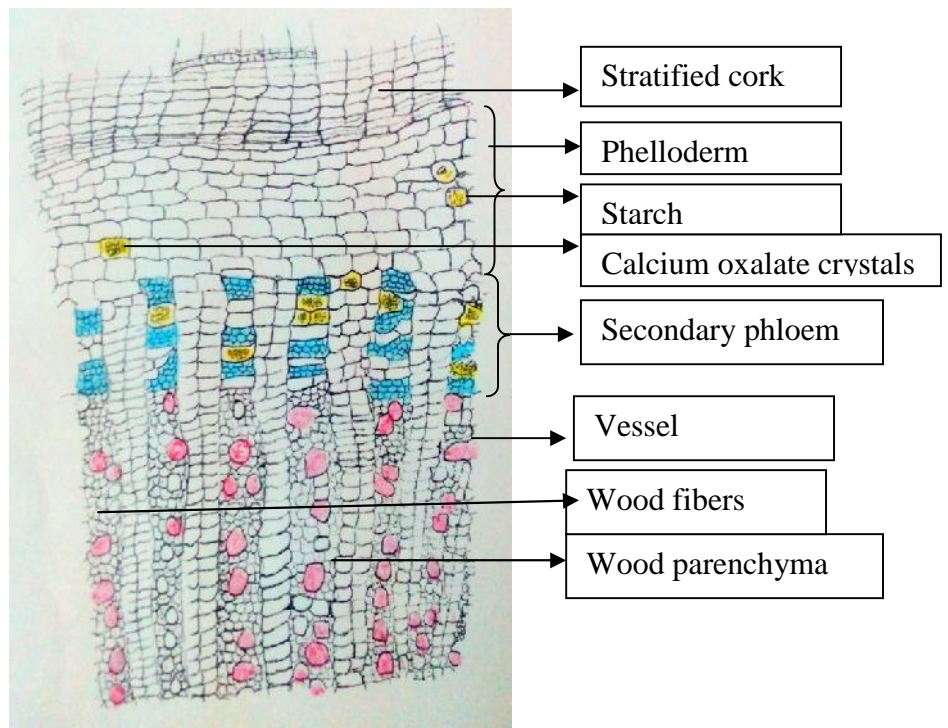 Stratified cork
Phelloderm
Starch
Calcium oxalate crystals
Secondary phloem
Vessel
Wood fibers
Wood parenchyma